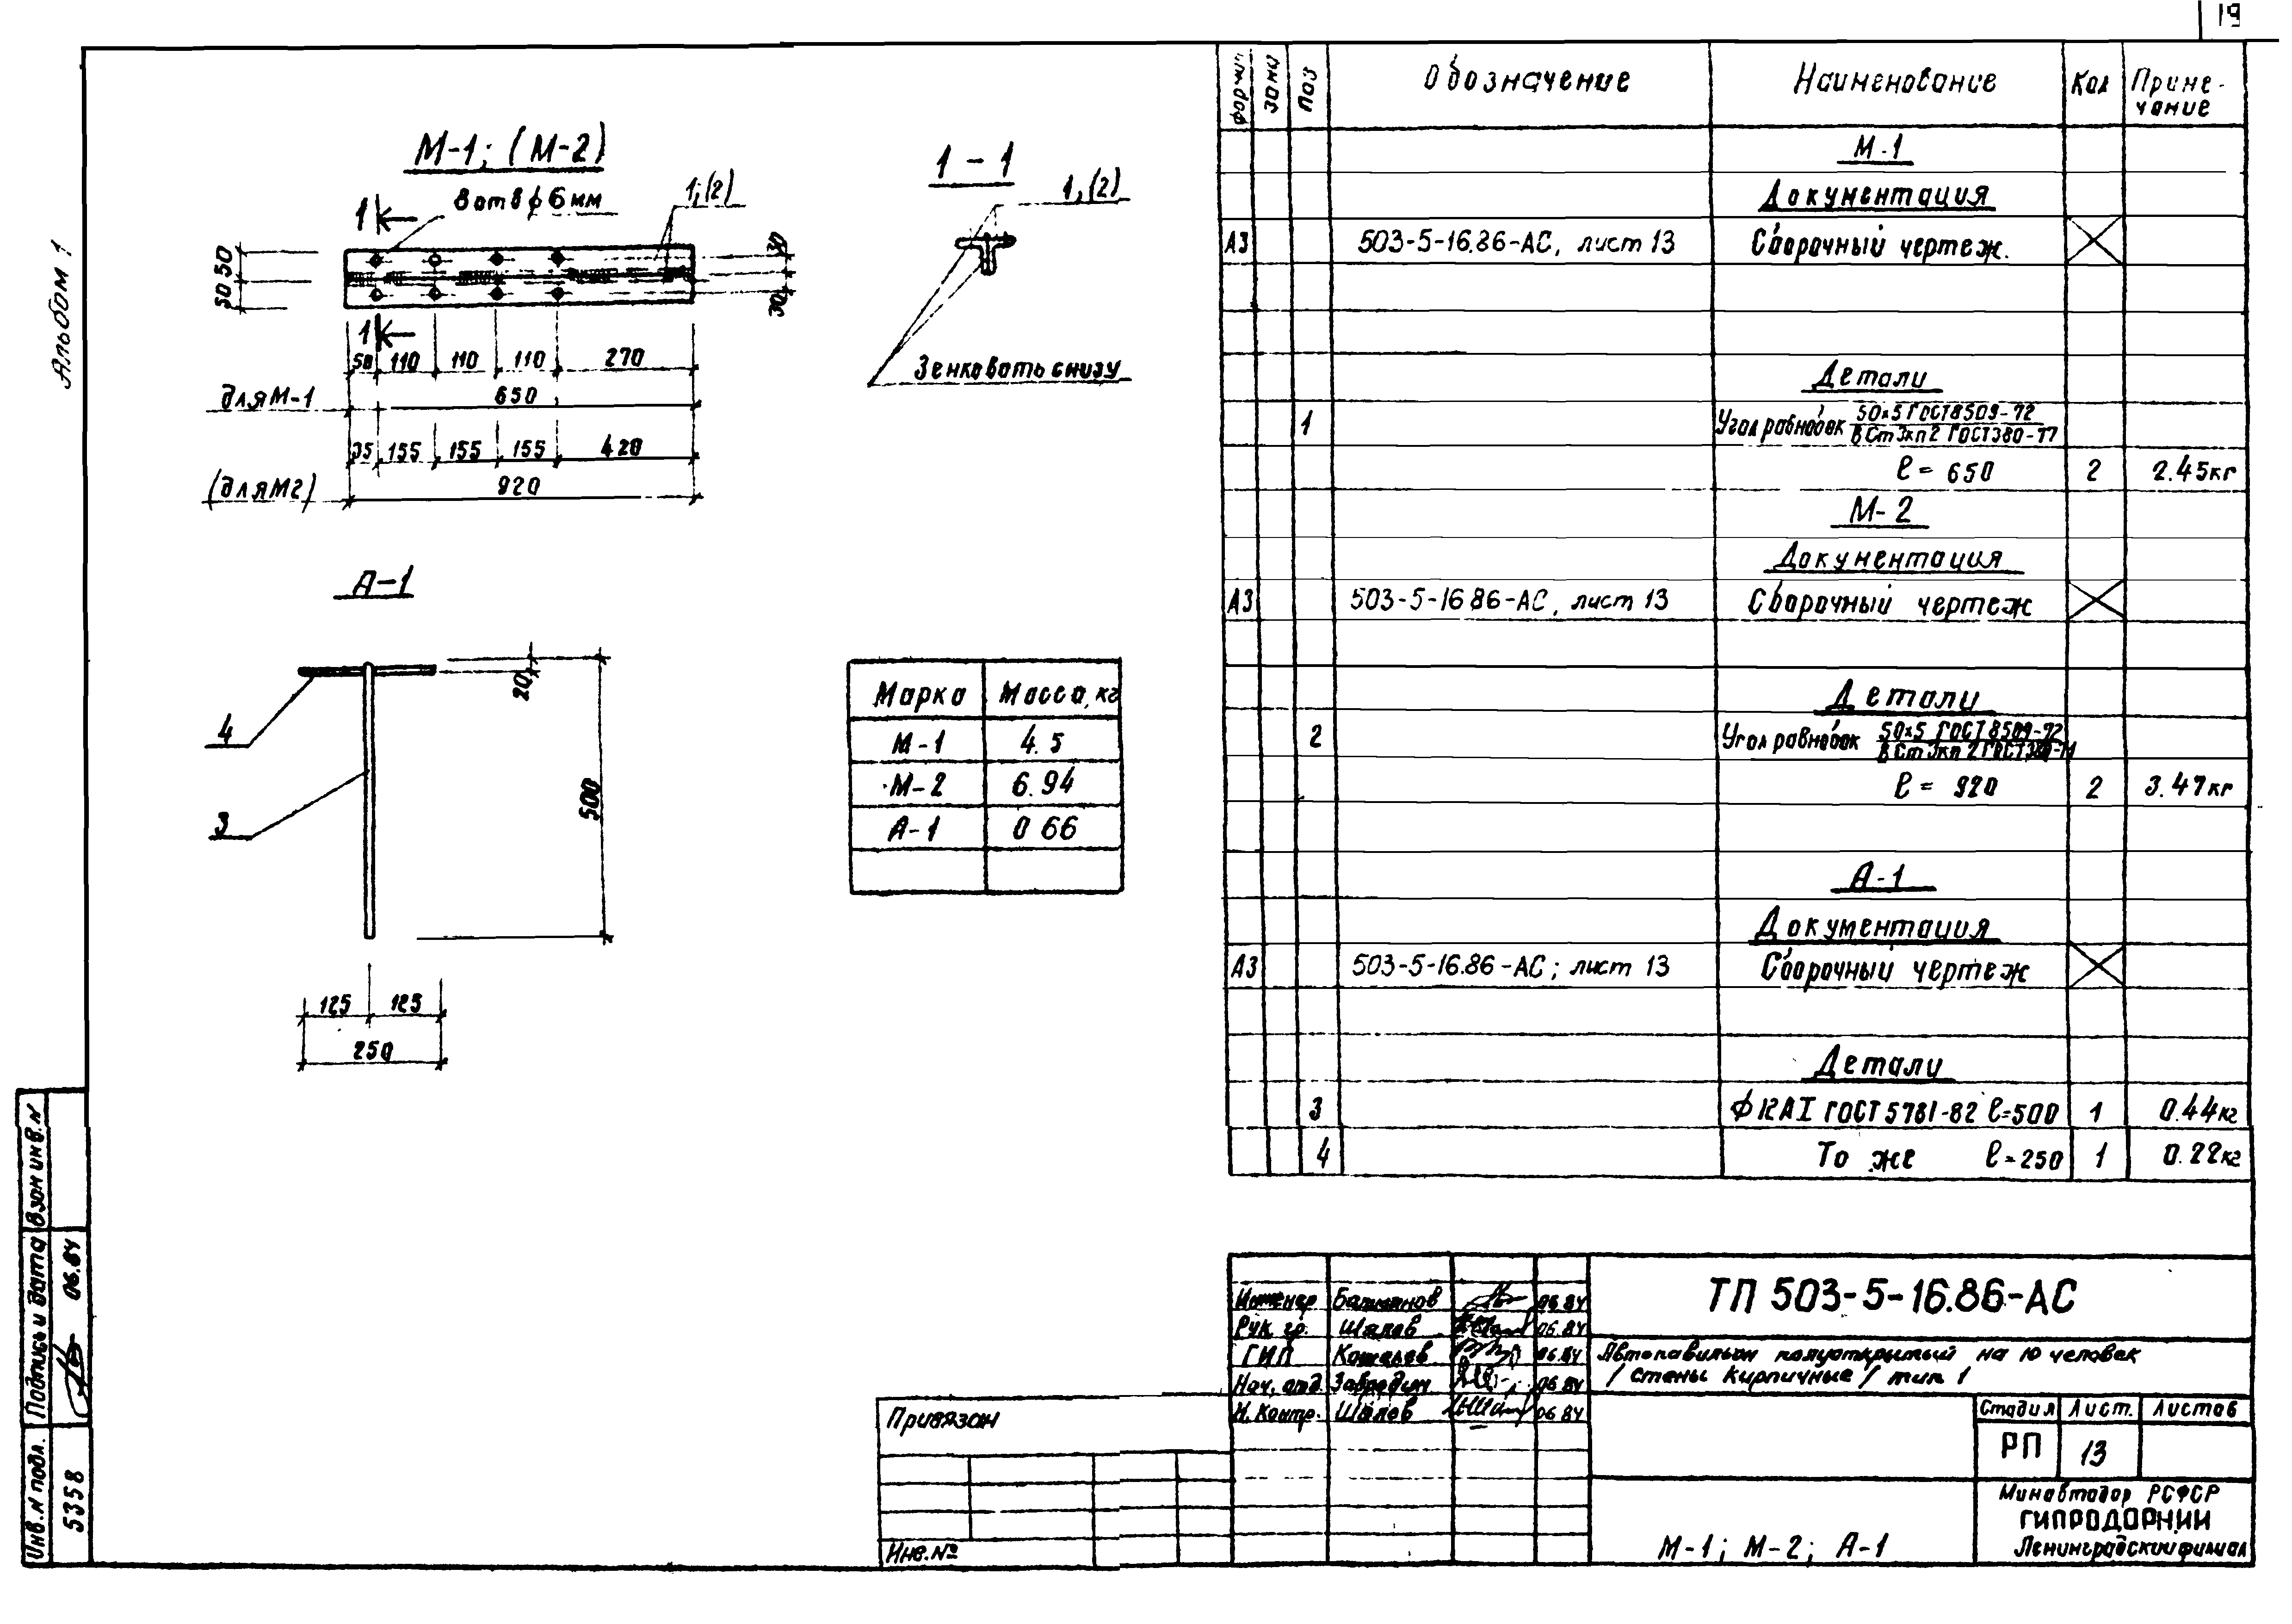 19
Альбом 1
М-1; (М-2)
8 отв ϕ 6 мм
1,(2)
1
1
50 50
30
30
50 110 110 110 270
для М-1 650
35 155 155 155 420
(для М2) 920
1 - 1
1,(2)
Зенковать снизу
А-1
4
3
20
500
125 125
250
Марка Масса, кг
М-1 4.5
М-2 6.94
А-1 0 66
Формат Зона Поз Обозначение Наименование Кол Приме-
чание
М-1
Документация
А3 503-5-16.86-АС, лист 13 Сборочный чертеж.
Детали
1 Угол равнобок 50х5 ГОСТ 8509-72
В Ст 3кп2 ГОСТ 380-77
ℓ = 650 2 2.45кг
М-2
Документация
А3 503-5-16 86-АС, лист 13 Сборочный чертеж
Детали
2 Угол равнобок 50х5 ГОСТ 8509-72
В Ст 3кп 2 ГОСТ
ℓ = 920 2 3.47кг
А-1
Документация
А3 503-5-16.86-АС; лист 13 Сборочный чертеж
Детали
3 ϕ 12 АI ГОСТ 5781-82 ℓ=500 1 0.44кг
4 То же ℓ=250 1 0.22кг
Инженер 06.84
Рук. гр. Шалов 06.84
ГИП 06.84
Нач. отд. Завродин 06 84
Н. Контр. Шалов 06 84
ТП 503-5-16.86-АС
Автопавильон полуоткрытый на 10 человек
/ стены кирпичные / тип 1
Стадия Лист. Листов
РП 13
М-1; М-2; А-1
Минавтодор РСФСР
ГИПРОДОРНИИ
Ленинградский филиал
Привязан
Инв.№
Взам инв. N
Подпись и дата 06.84
Инв. N подл. 5358